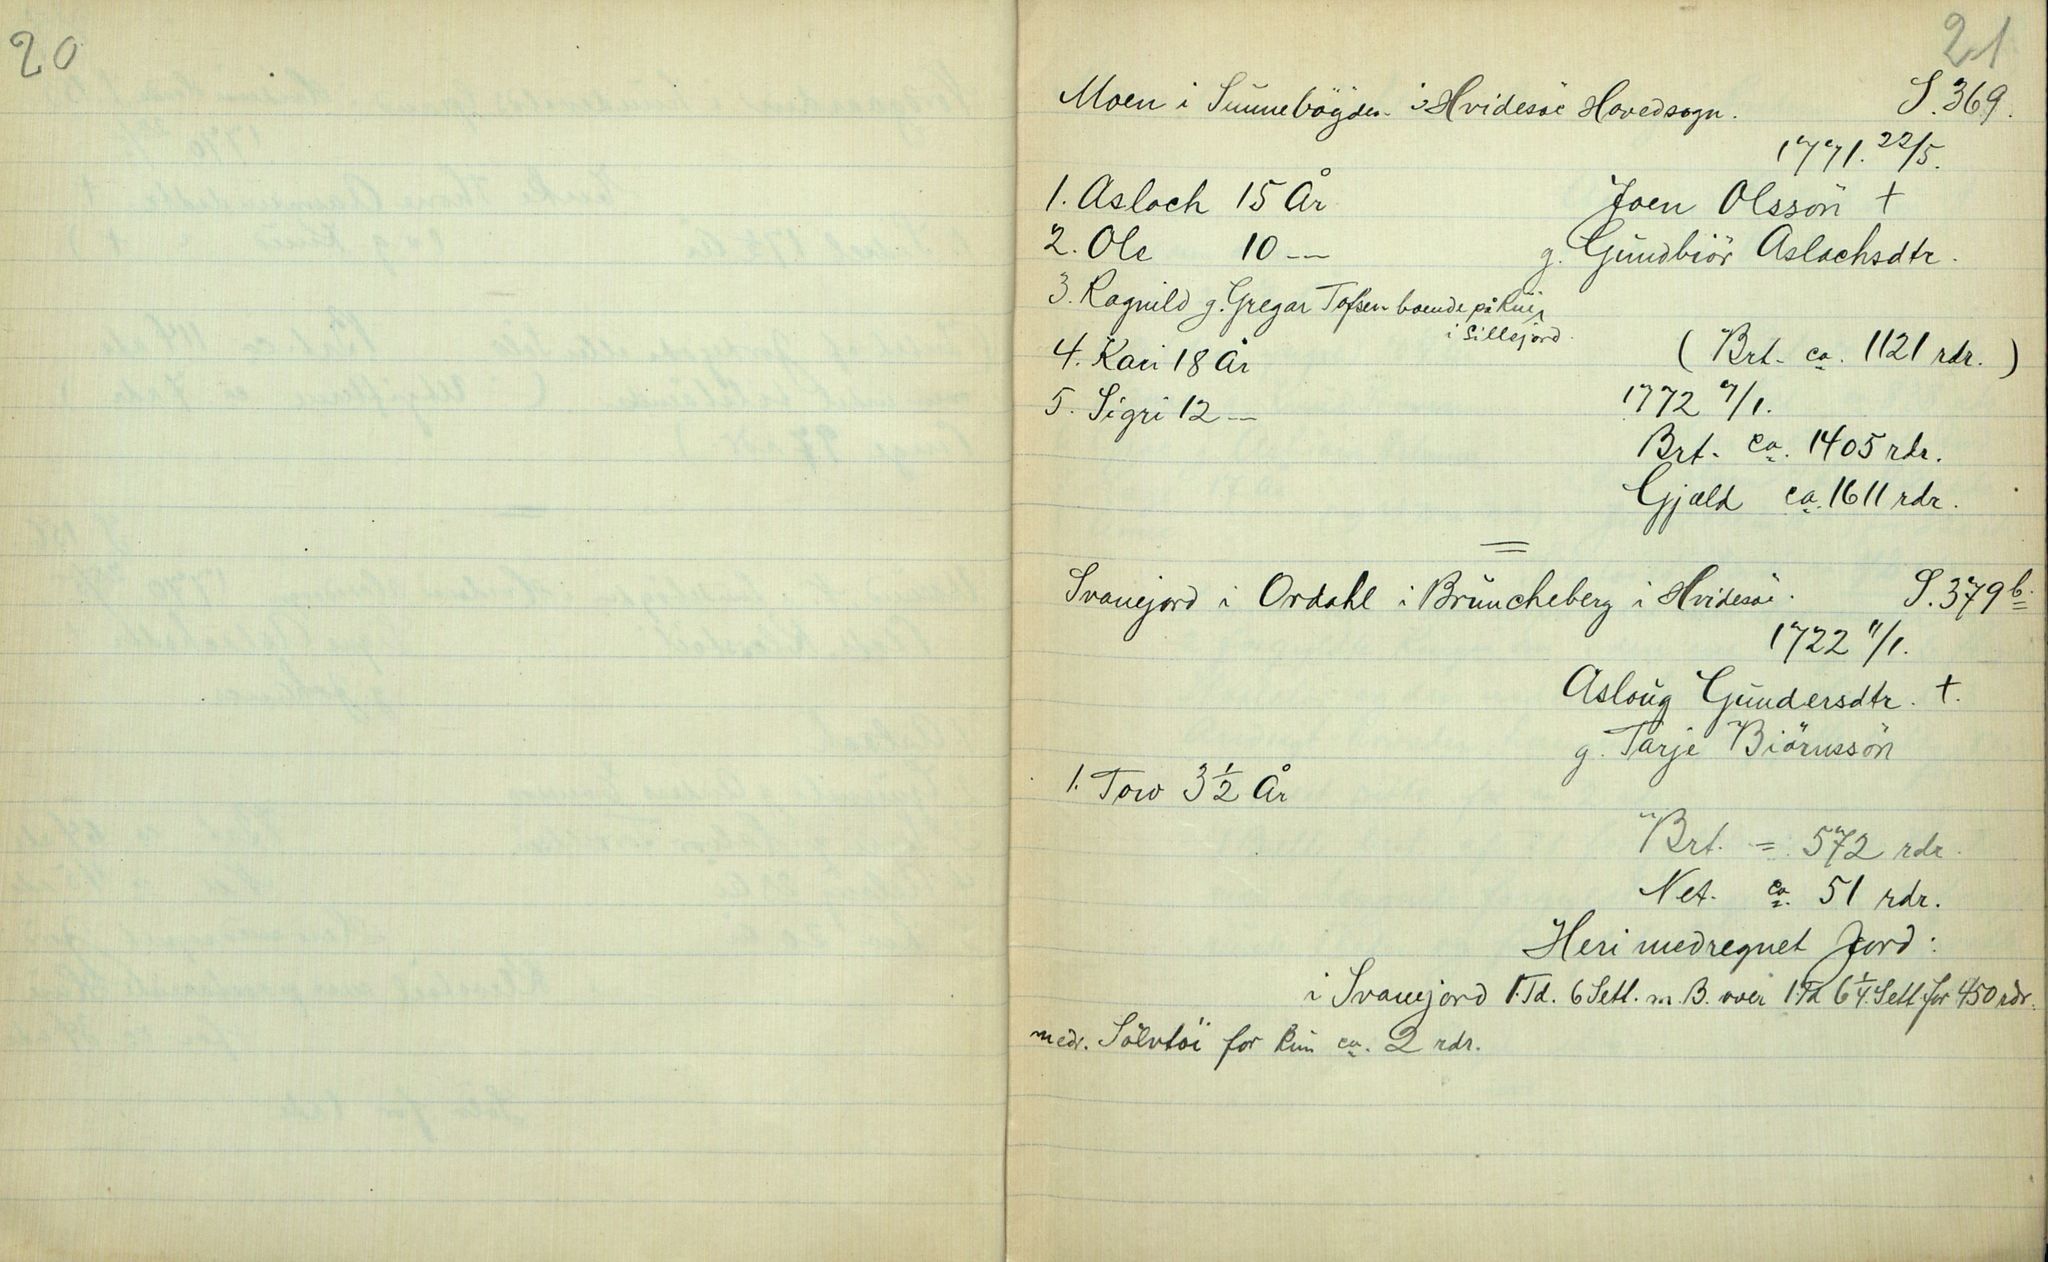 20
21
Moen i Sunnebögden i Hvidesöe Hovedsogn. S. 369.
1771. 22/5.
1. Asloch 15 År Joen Olssön †
2. Ole 10 — g. Gŭndbiör Aslachsdtr.
3. Ragnild g. Gregar Tofsen boende på
i Sillejord.
4. Kari 18 År (Brt. ca. 1121 rdr.)
5. Sigri 12 — 1772 7/1.
Brt. ca. 1405 rdr.
Gjæld ca. 1611 rdr.
Svanejord i Ordahl i Brŭncheberg i Hvidesöe. S. 379 b.
1722 11/1.
Asloŭg Gŭndersdtr. †.
g. Tarje Biörnssön
1. Tow 3 1/2 År
Brt. = 572 rdr.
Net. ca. 51 rdr.
Heri medregnet Jord:
i Svanejord 1 Td. 6 Setl. m. B. over 1 Td 6 1/4 Setl for 450 rdr.
medr. Sölvtöi for kun ca. 2 rdr.